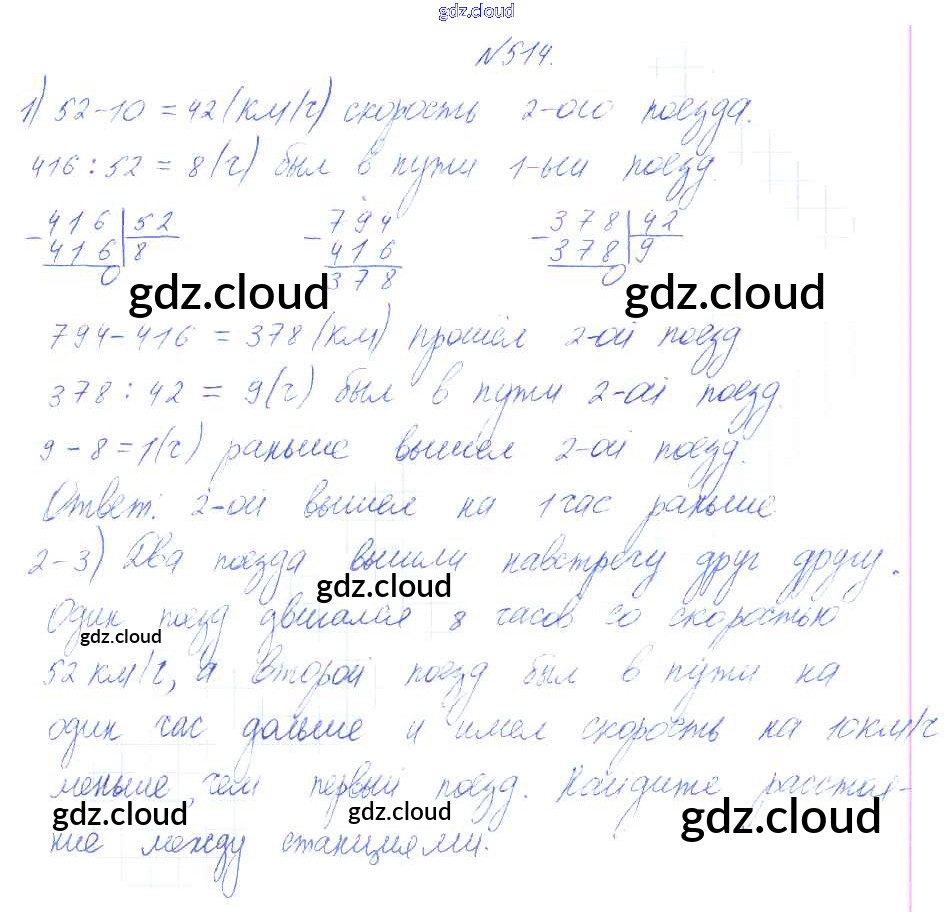 gdz.cloud
№514.
1) 52-10 = 42 (км/ч) скорость 2-ого поезда.
416 : 52 = 8 (ч) был в пути 1-ый поезд.
- 416 | 52 - 794 - 378 | 42
416 | 8 416 378 | 9
0 378 0
gdz.cloud gdz.cloud
794 - 416 = 378 (км) прошёл 2-ой поезд
378 : 42 = 9 (ч) был в пути 2-ой поезд.
9 - 8 = 1 (ч) раньше вышел 2-ой поезд.
Ответ: 2-ой вышел на 1 час раньше
2-3) Два поезда вышли навстречу друг другу.
gdz.cloud
Один поезд двигался 8 часов со скоростью
gdz.cloud
52 км/ч, а второй поезд был в пути на
один час дольше и имел скорость на 10 км/ч
меньше, чем первый поезд. Найдите расстоя-
gdz.cloud gdz.cloud gdz.cloud
ние между станциями.